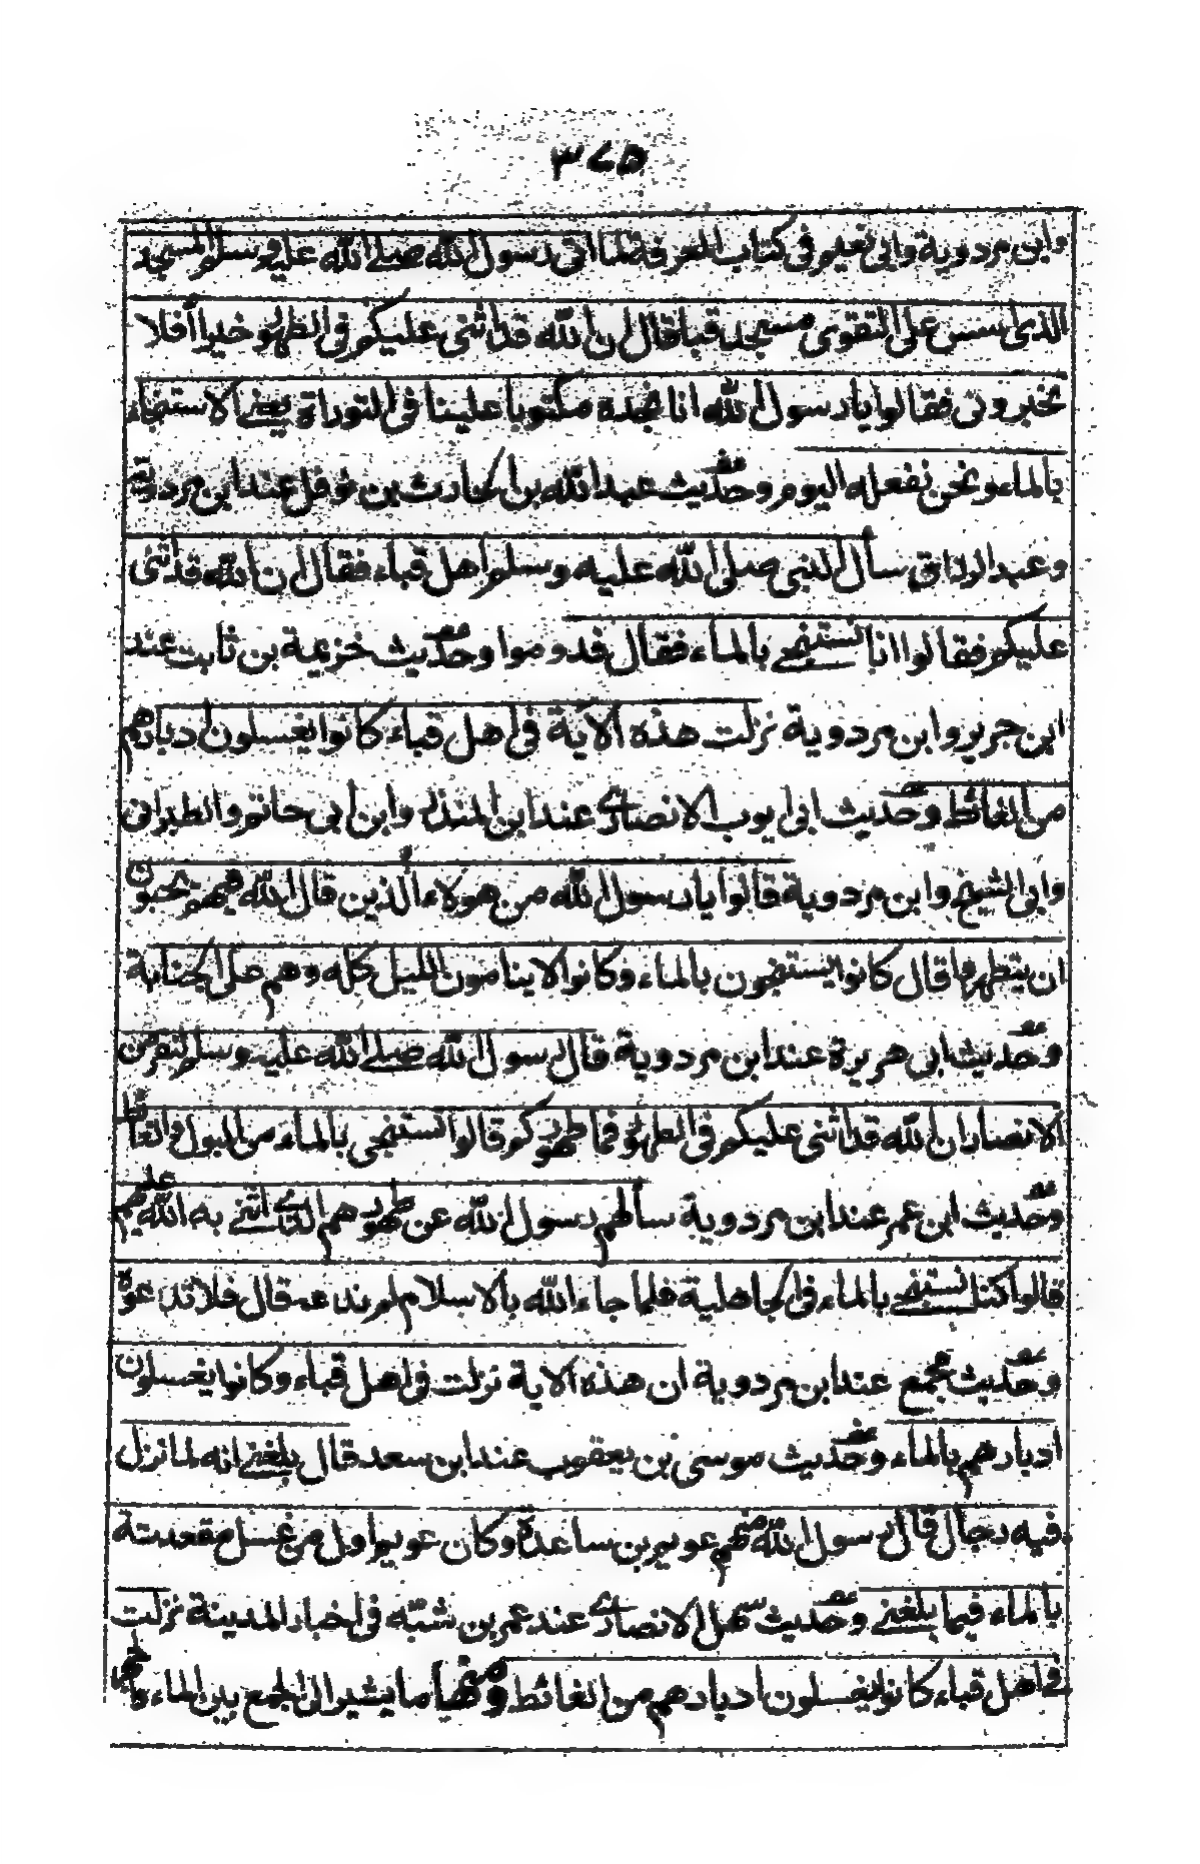 ٣٧٥
وابن مردوية وابى نعيم فى كتاب المعرفة لما اتى رسول الله صلى الله عليه وسلم المسجد
الذى اسس على التقوى مسجد قبا قال ان الله قد اثنى عليكم فى الطهور خيرا أفلا
تخبرونى فقالوا يا رسول الله انا نجده مكتوبا علينا فى التوراة يعنى الاستنجاء
بالماء ونحن نفعله اليوم وحديث عبد الله بن الحارث بن نوفل عند ابن مردوية
وعبد الرزاق سأل النبى صلى الله عليه وسلم اهل قباء فقال ان الله قد اثنى
عليكم فقالوا انا نستنجى بالماء فقال فدوموا وحديث خزيمة بن ثابت عند
ابن جرير وابن مردوية نزلت هذه الآية فى اهل قباء كانوا يغسلون ادبارهم
من الغائط وحديث ابى ايوب الانصارى عند ابن المنذر وابن ابى حاتم والطبرانى
وابى الشيخ وابن مردوية قالوا يا رسول الله من هولاء الذين قال الله فيهم يحبون
ان يتطهروا قال كانوا يستنجون بالماء وكانوا لا ينامون الليل كله وهم على الجنابة
وحديث ابى هريرة عند ابن مردوية قال رسول الله صلى الله عليه وسلم لنفر من
الانصار ان الله قد اثنى عليكم فى الطهور فما طهوركم قالوا نستنجى بالماء من البول والغائط
وحديث ابن عمر عند ابن مردوية سألهم رسول الله عن طهورهم الذى اثنى به الله عليهم
قالوا كنا نستنجى بالماء فى الجاهلية فلما جاء الله بالاسلام لم ندعه قال فلا تدعوه
وحديث مجمع عند ابن مردوية ان هذه الاية نزلت فى اهل قباء وكانوا يغسلون
ادبارهم بالماء وحديث موسى بن يعقوب عند ابن سعد قال بلغنى انه لما نزل
فيه رجال قال رسول الله منهم عويم بن ساعدة وكان عويم اول من غسل مقعدته
بالماء فيما بلغنى وحديث سهل الانصارى عند عمر بن شبّه فى اخبار المدينة نزلت
فى اهل قباء كانوا يغسلون ادبارهم من الغائط ومنها ما يشير الى الجمع بين الماء